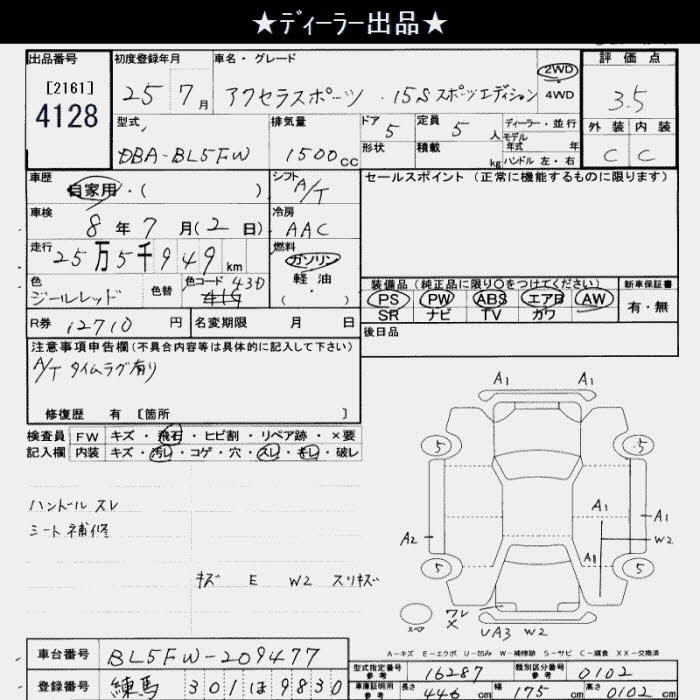 ★ディーラー出品★
出品番号 [2161] 4128
初度登録年月 25 7月
車名・グレード アクセラスポーツ ・15S スポーツエディション
2WD 4WD
評価点 3.5
外装 内装
C C
型式 DBA-BL5FW
排気量 1500cc
ドア 5 形状
定員 5人 積載 kg
ディーラー・並行
モデル年式 年
ハンドル 左・右
車歴 自家用・( )
シフト A/T
セールスポイント (正常に機能するものに限ります)
車検 8年7月(2日)
冷房 AAC
走行 25万5千949km
燃料 ガソリン 軽油 ( )
色 ジールレッド 色替 色コード 43D
装備品 (純正品に限り○をつけてください) 新車保証書
PS PW ABS エアB AW 有・無
SR ナビ TV カワ
R券 12710円 名変期限 月 日
後日品
注意事項申告欄(不具合内容等は具体的に記入して下さい)
A/T タイムラグ有り
修復歴 有 [箇所 ]
検査員 FW キズ・飛石・ヒビ割・リペア跡・×要
記入欄 内装 キズ・汚レ・コゲ・穴・スレ・キレ・破レ
A1 A1
5 5
ハンドル スレ
シート補修
A1 A1
A2 W2
A1
5 5
キズ E W2 スリキズ
スペア
ワレ
×
UA3 W2
A-キズ E-エクボ U-凹み W-補修跡 S-サビ C-腐食 XX-交換済
車台番号 BL5FW-209477
型式指定番号 参考 16287 類別区分番号 参考 0102
登録番号 練馬 301 ほ 9830
車庫証明用 参考 長さ 446 cm 幅 175 cm 高さ 0102 cm